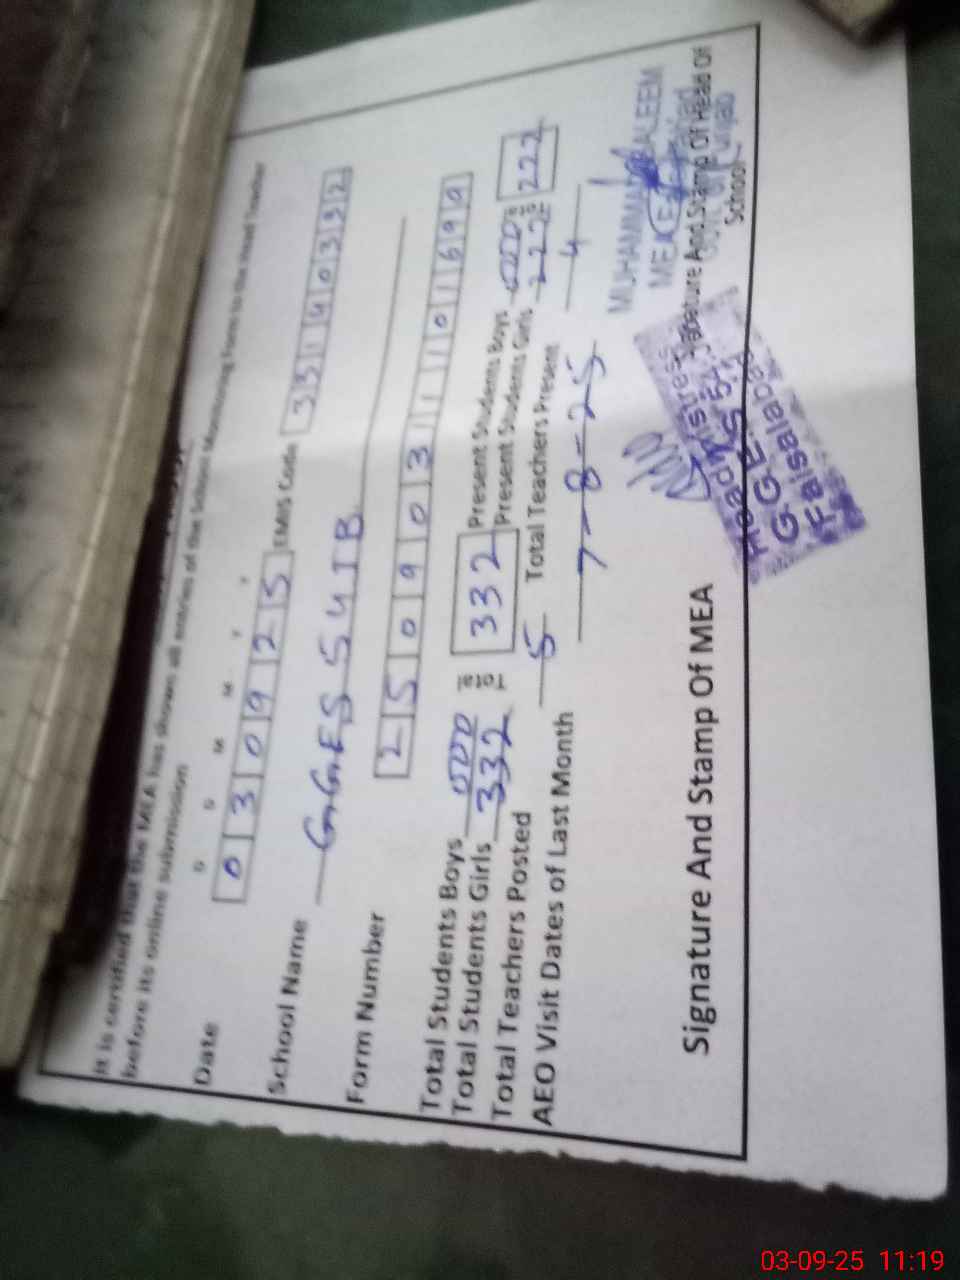 It is certified that the MEA has shown all entries of the School Monitoring Form to the Head Teacher
before its online submission
D D M M Y Y
Date 030925 EMIS Code 33140332
School Name GGES 54JB
Form Number 2509031101699
Total Students Boys 000 Total 332 Present Students Boys 000 Total 222
Total Students Girls 332 Present Students Girls 222
Total Teachers Posted 5 Total Teachers Present 4
AEO Visit Dates of Last Month 7-8-25
MUHAMMAD SALEEM
MEA
Govt. of Punjab
Signature And Stamp Of MEA Signature And Stamp Of Head Of
School
Headmistress
G.G.E.S 54
Faisalabad
03-09-25 11:19